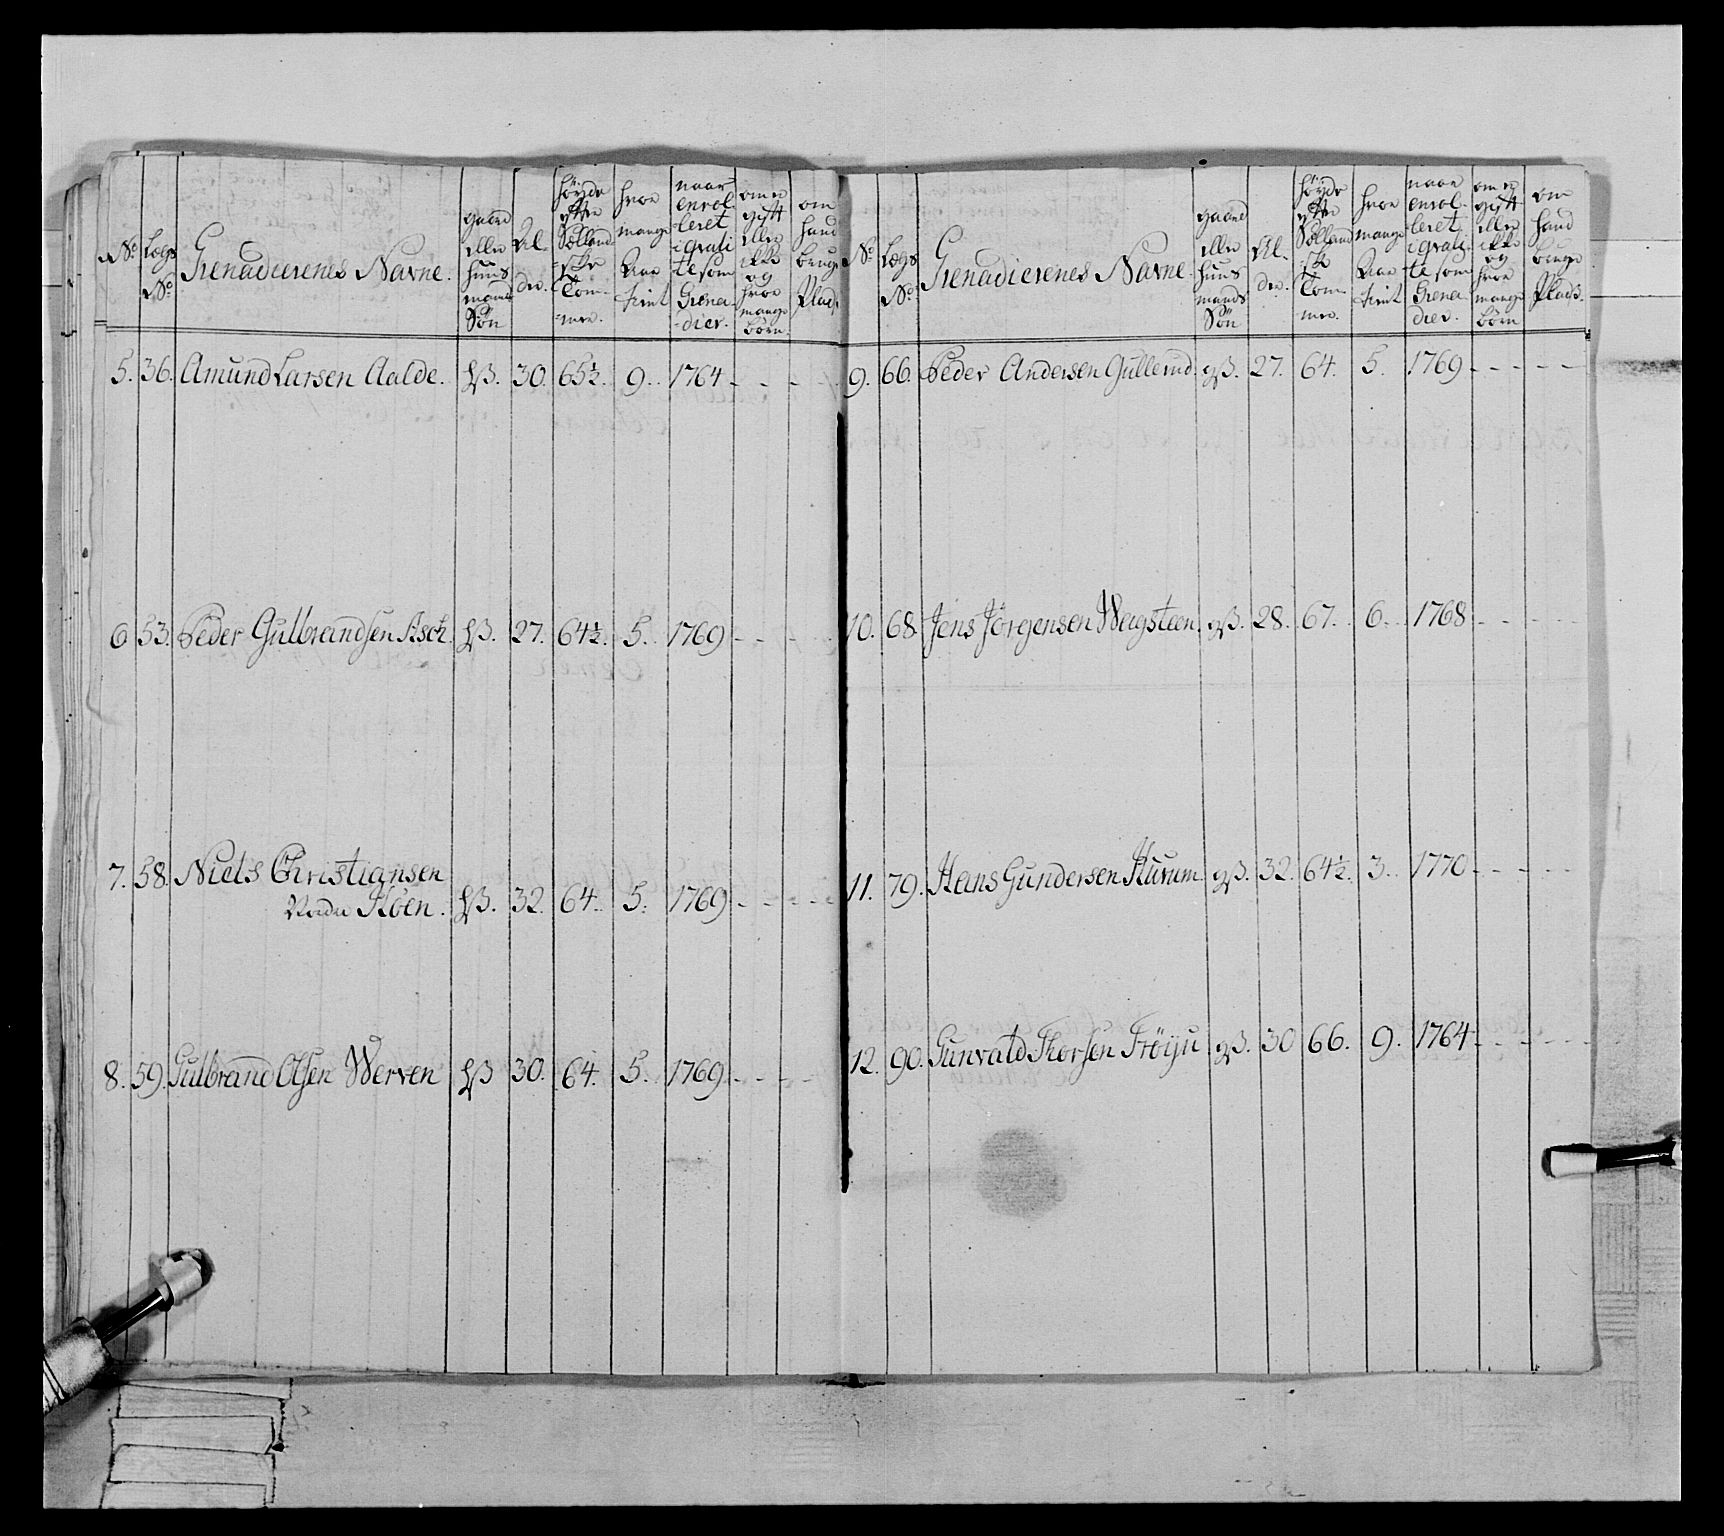 No. Lægs No. Grenadierenes Navne. gaard eller huus mands Søn Al- der. höyde efter Sælland- ske Tom- mer. hvor mange Aar tient naar enrol- leret i qvali te som Grena- dier. om er gift eller ikke og hvor mange börn. om hand bruge Plads.
5. 36. Amund Larsen Aalde. hß. 30. 65½. 9. 1764 - - - -
6 53. Peder Gulbrandsen Asch. hß. 27. 64½. 5. 1769 - - - -
7. 58. Niels Christiansen
Røen. hß. 32. 64. 5. 1769 - - - -
8. 59. Gulbrand Olsen Werven hß 30. 64. 5. 1769 - - - -
No. Lægs No. Grenadierenes Navne gaard eller huus mands Søn Al- der. höyde efter Sælland ske Tom mer. hvor mange Aar tient naar enrol- leret i qvali te som Grena dier. om er gift eller ikke og hvor mange börn om hand bruge Plads.
9. 66. Peder Andersen Gullerud. gß. 27. 64. 5. 1769 - - - - -
10. 68. Jens Jörgensen Wegsteen. gß. 28. 67. 6. 1768 - - - -
11. 79. Hans Gundersen Kurum. gß. 32. 64½. 3. 1770 - - - -
12. 90. Gunvald Thorsen Fröyu gß. 30 66. 9. 1764 - - - - -